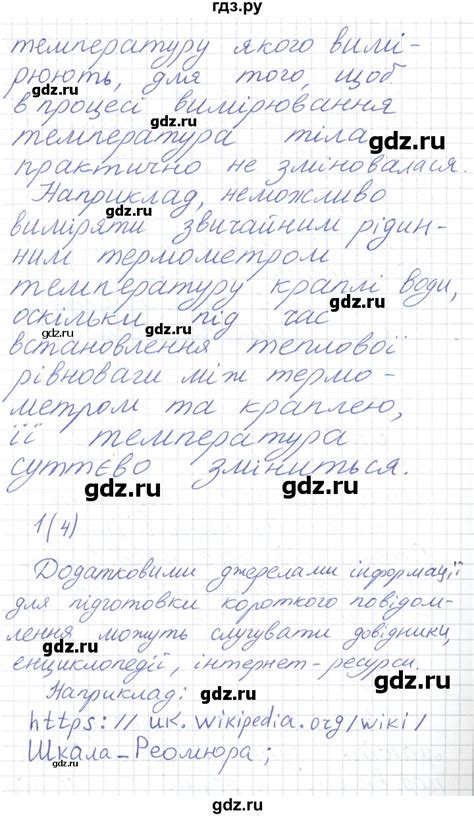 гдз.ру
температуру якого вимі-
рюють, для того, щоб
gdz.ru
в процесі вимірювання
температура тіла
gdz.ru
практично не зміновалася.
Наприклад, неможливо
gdz.ru
виміряти звичайним рідин-
ним термометром
температуру краплі води,
gdz.ru
оскільки під час
gdz.ru
встановлення теплової
рівноваги між термо-
метром та краплею,
gdz.ru
її температура
суттєво зміниться.
gdz.ru
gdz.ru
1(4)
gdz.ru
Додатковими джерелами інформації
для підготовки короткого повідом-
gdz.ru
лення можуть слугувати довідники,
gdz.ru
енциклопедії, інтернет-ресурси.
Наприклад:
gdz.ru
gdz.ru
https://uk.wikipedia.org/wiki/
Шкала_Реомюра;
gdz.ru
gdz.ru